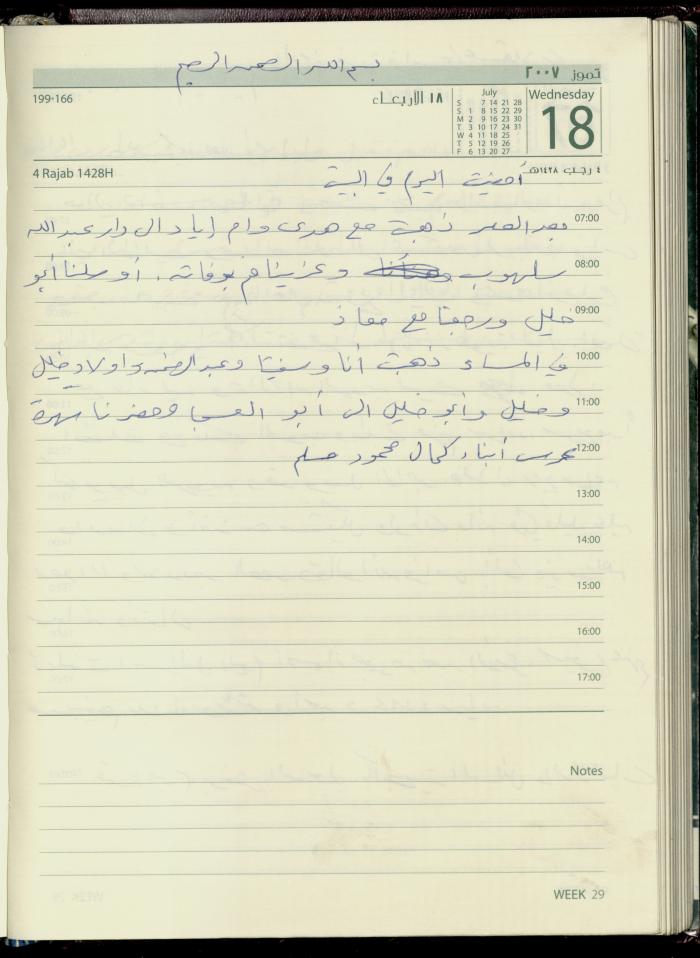 بسم الله الرحمن الرحيم
تموز ٢٠٠٧
199-166
١٨ الأربعاء
July
Wednesday
18
S 7 14 21 28
S 1 8 15 22 29
M 2 9 16 23 30
T 3 10 17 24 31
W 4 11 18 25
T 5 12 19 26
F 6 13 20 27
4 Rajab 1428H
٤ رجب ١٤٢٨هـ
أمضيت اليوم في البيت
07:00
بعد العصر ذهبت مع هدى وام إياد الى دار عبد الله
08:00
سلهوب وعزيناهم بوفاته. أوصلنا أبو
09:00
خليل ورجعنا مع معاذ
10:00
في المساء ذهبت أنا وعبد الرحمن واولاد خليل
11:00
وخليل وأبو خليل الى أبو وحضرنا سهرة
12:00
عرس أبناء كمال محمود مسلم
13:00
14:00
15:00
16:00
17:00
Notes
WEEK 29